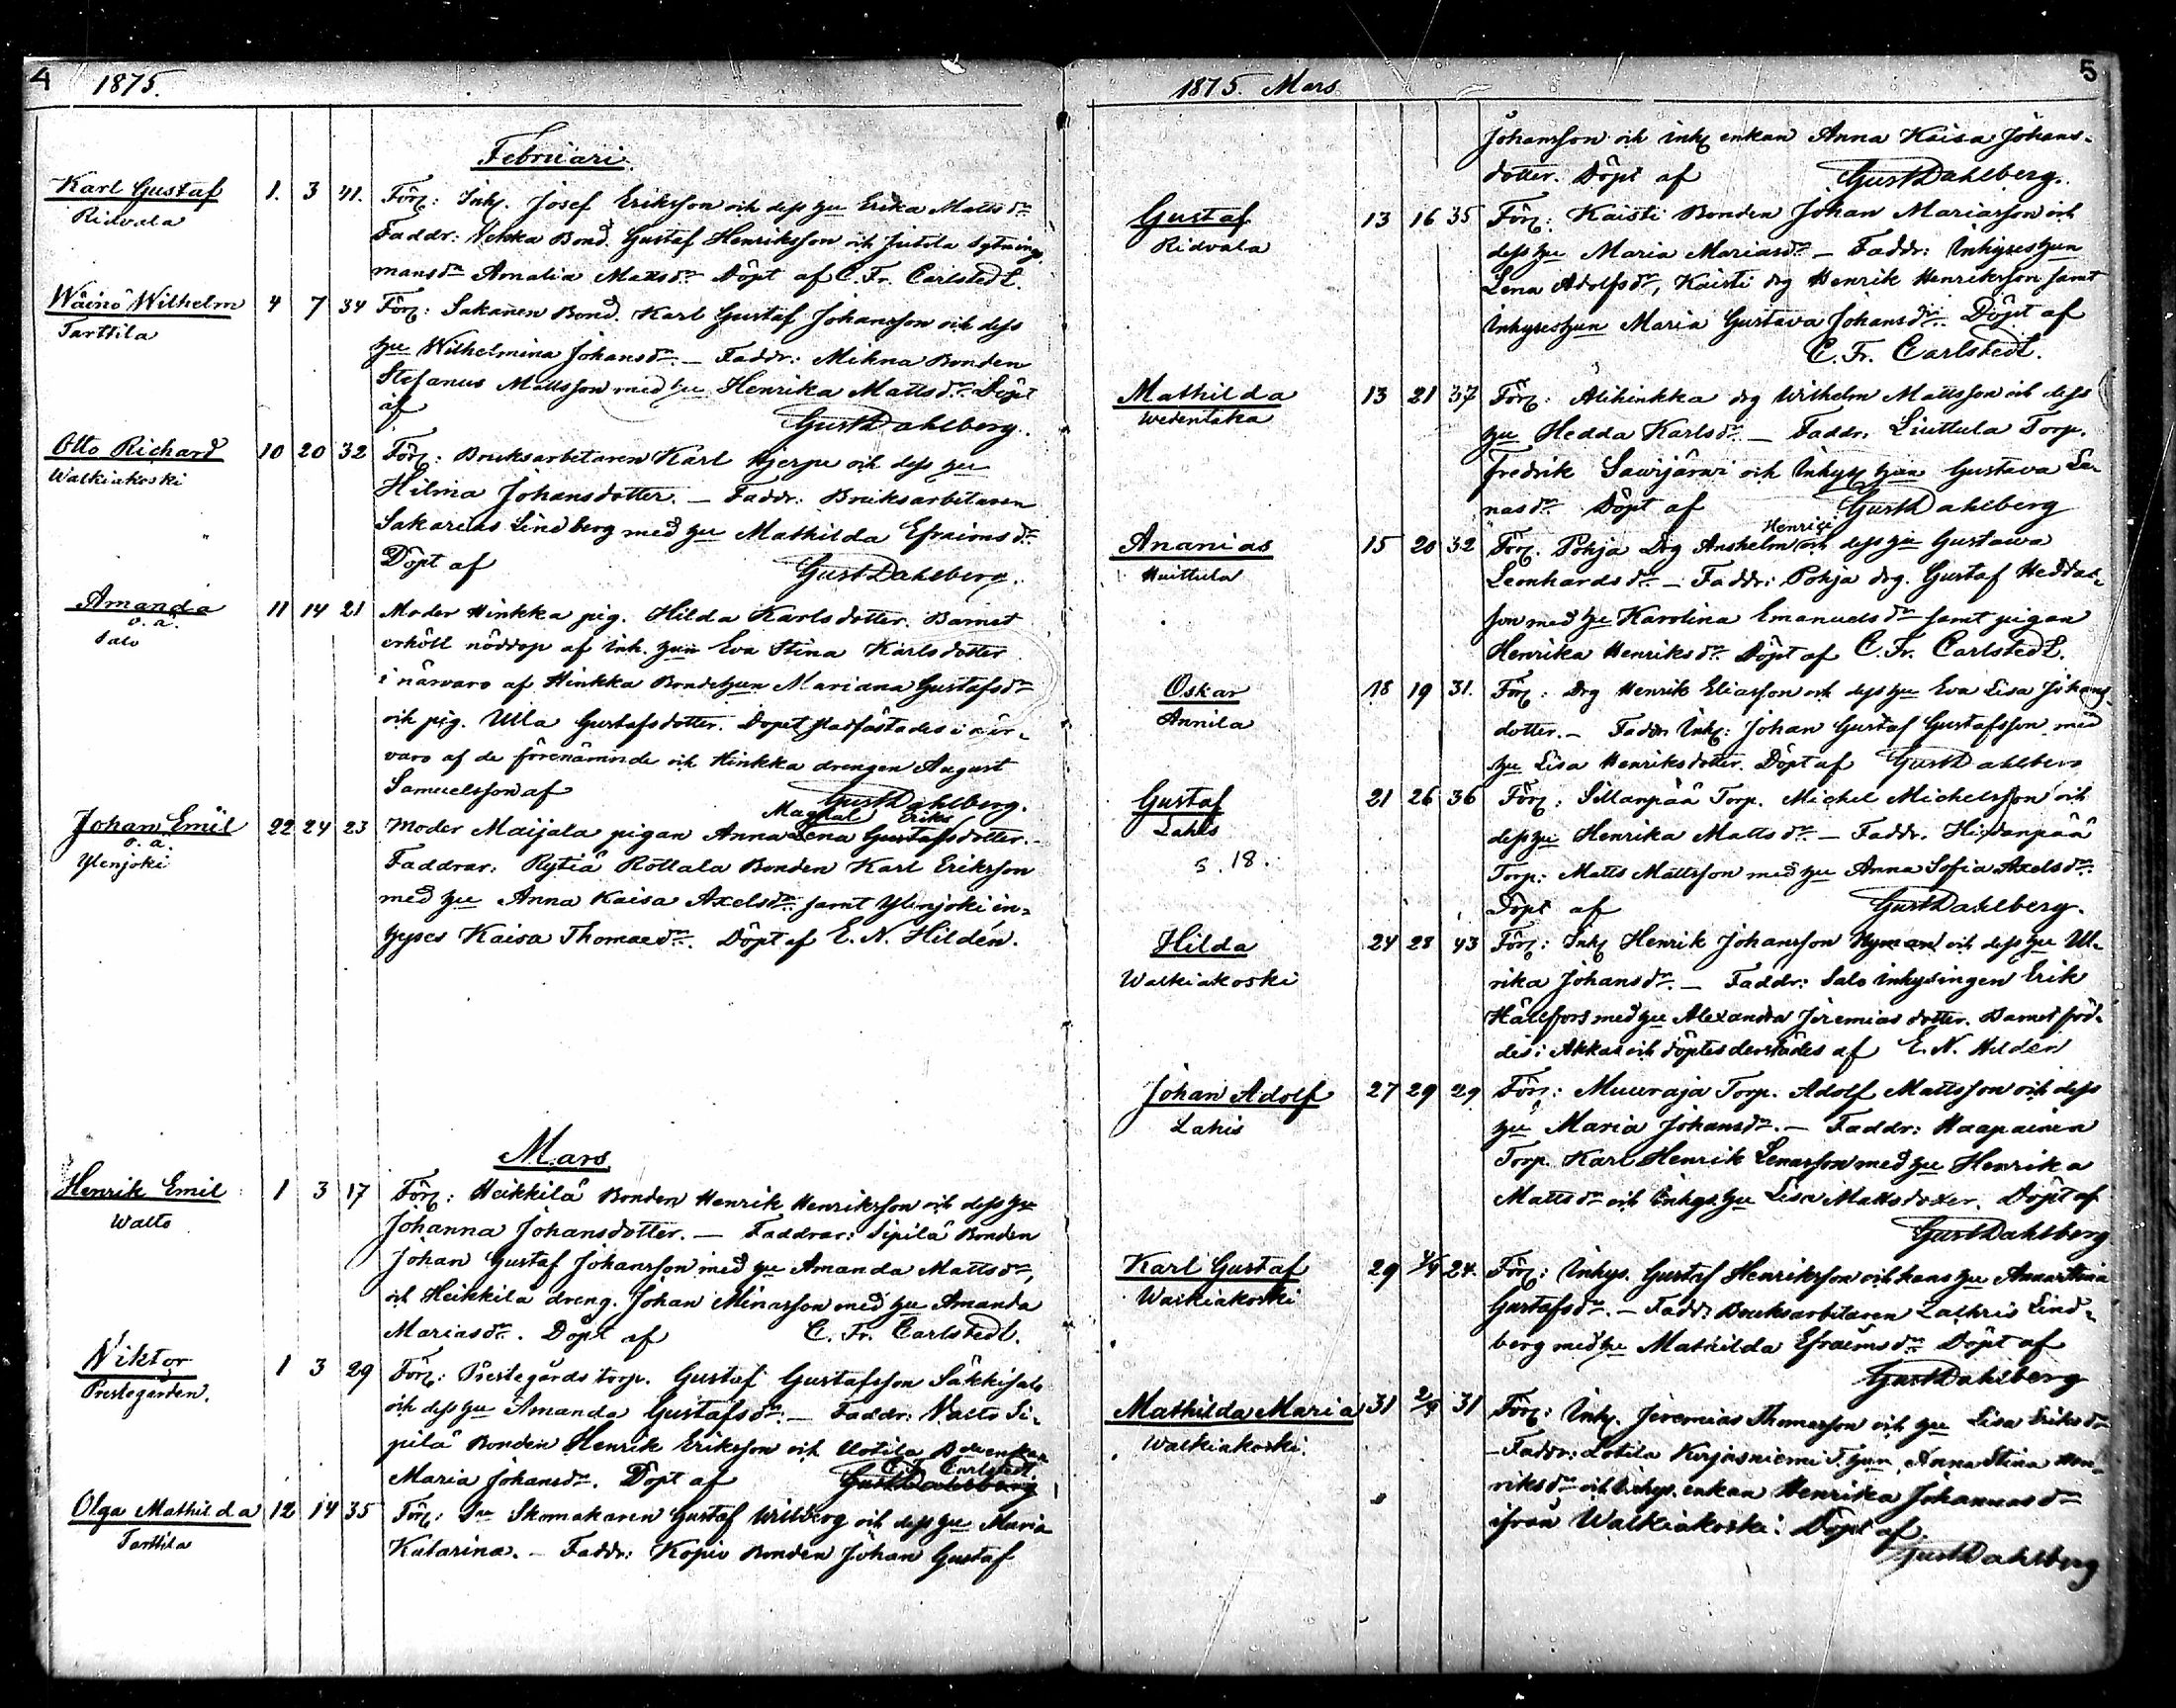 4 1875.
Februari
Karl Gustaf 1. 3 41. Förä: Inh. Josef Eriksson och dess hu Erika Mattsdr
Ridvala Faddr: Uckka Bond. Gustaf Henriksson och Jutola Sytnings
mansdr Amalia Mattsdr Döpt af C. Fr. Carlstedt.
Wäinö Wilhelm 4 7 34 Förä: Sakanen Bond. Karl Gustaf Johansson och dess
Tarttila hu Wilhelmina Johansdr. – Faddr: Mikna Bonden
Stefanus Mattsson med hu Henrika Mattsdr. Döpt
af Gust Dahlberg.
Otto Richard 10 20 32 Förä: Bruksarbetaren Karl Hjerpe och dess hu
Walkiakoski Hilma Johansdotter. – Faddr: Bruksarbetaren
Sakarias Lindberg med hu Mathilda Efraimsdr.
Döpt af Gust Dahlberg.
Amanda 11 14 21 Moder Hinkka pig. Hilda Karlsdotter. Barnet
o. ä. erhöll nöddop af inh. hun Eva Stina Karlsdotter
Salo i närvaro af Hinkka Bondehun Mariana Gustafsdr
och pig. Ulla Gustafsdotter. Dopet stadfästades i när-
varo af de förenämnde och Hinkka drengen August
Samuelsson af Gust Dahlberg.
Magdal Eriks
Johan Emil 22 24 23 Moder Maijala pigan Anna Lena Gustafsdotter. –
o. ä. Faddrar: Rytiä Rottala Bonden Karl Eriksson
Ylenjoki med hu Anna Kaisa Axelsdr. samt Ylenjoki in-
hyses Kaisa Thomaedr. Döpt af E. N. Hildén.
Mars
Henrik Emil 1 3 17 Förä: Heikkilä Bonden Henrik Henriksson och dess hu
Walto Johanna Johansdotter. – Faddrar: Sipilä Bonden
Johan Gustaf Johansson med hu Amanda Mattsdr,
och Heikkilä dreng. Johan Minasson med hu Amanda
Mariasdr. Döpt af C. Fr. Carlstedt.
Viktor 1 3 29 Förä: Prestegårds torp. Gustaf Gustafsson Säkkisalo
Prestegården. och dess hu Amanda Gustafsdr. – Faddr: Walto Si-
pilä Bonden Henrik Eriksson och Uotila Bdeenkan
C. Fr. Carlstedt.
Maria Johansdr. Döpt af Gust Dahlberg
Olga Mathilda 12 14 35 Förä: Sn Skomakaren Gustaf Wilberg och dess hu Maria
Tarttila Katarina. – Faddr: Kopio Bonden Johan Gustaf
1875. Mars 5
Johansson och inh enkan Anna Kaisa Johans-
dotter. Döpt af Gust Dahlberg.
Gustaf 13 16 35 Förä: Kaisti Bonden Johan Mariasson och
Ridvala dess hu Maria Mariasdr. – Faddr: Inhyseshun
Lena Adolfsdr, Kaisti drg Henrik Henriksson samt
Inhyseshun Maria Gustava Johansdr. Döpt af
C. Fr. Carlstedt.
Mathilda 13 21 37 Förä: Alihinkka drg Wilhelm Mattsson och dess
Wedentaka hu Hedda Karlsdr. – Faddr. Liuttula Torp.
Fredrik Sawijärwi och Inhys hun Gustava La-
nasdr. Döpt af Gust Dahlberg
Henrici
Ananias 15 20 32 Förä. Pohja Drg Anshelm och dess hu Gustawa
Huittula Leonhardsdr – Faddr: Pohja drg. Gustaf Heddas-
son med hu Karolina Emanuelsdr samt pigan
Henrika Henriksdr. Döpt af C. Fr. Carlstedt.
Oskar 18 19 31. Förä: Drg Henrik Eliasson och dess hu Eva Lisa Johans-
Annila dotter. – Faddr. Inh: Johan Gustaf Gustafsson med
hu Lisa Henriksdotter. Döpt af Gust Dahlberg
Gustaf 21 26 36 Förä: Sillanpää Torp. Michel Michelsson och
Lahis dess hu Henrika Mattsdr. – Faddr. Hiidanpää
s. 18. Torp: Matts Mattsson med hu Anna Sofia Axelsdr.
Döpt af Gust Dahlberg.
Hilda 24 28 43 Förä: Inh Henrik Johansson Nyman och dess hu Ul-
Walkiakoski rika Johansdr. – Faddr: Salo inhysingen Erik
Hällfors med hu Alexandra Jeremias dotter. Barnet föd-
des i Akkas och döptes derstädes af E. N. Hildén
Johan Adolf 27 29 29 Förä: Muuraja Torp. Adolf Mattsson och dess
Lahis hu Maria Johansdr. – Faddr: Haapainen
Torp. Karl Henrik Lenasson med hu Henrika
Mattsdr och Inhys. hu Lisa Mattsdotter. Döpt af
Gust Dahlberg
Karl Gustaf 29 4/4 24. Förä: Inhys. Gustaf Henriksson och hans hu Anna Stina
Walkiakoski Gustafsdr. – Faddr: Bruksarbetaren Zachris Lind-
berg med hu Mathilda Efraimsdr Döpt af
Gust Dahlberg
Mathilda Maria 31 2/4 31 Förä: Inh. Jeremias Thomasson och hu Lisa Eriksdr
Walkiakoski. – Faddr: Lotila Kirjasniemi T. hun, Anna Stina Hen-
riksdr och Inhys. enkan Henrika Johannasdr
ifrån Walkiakoski. Döpt af.
Gust Dahlberg